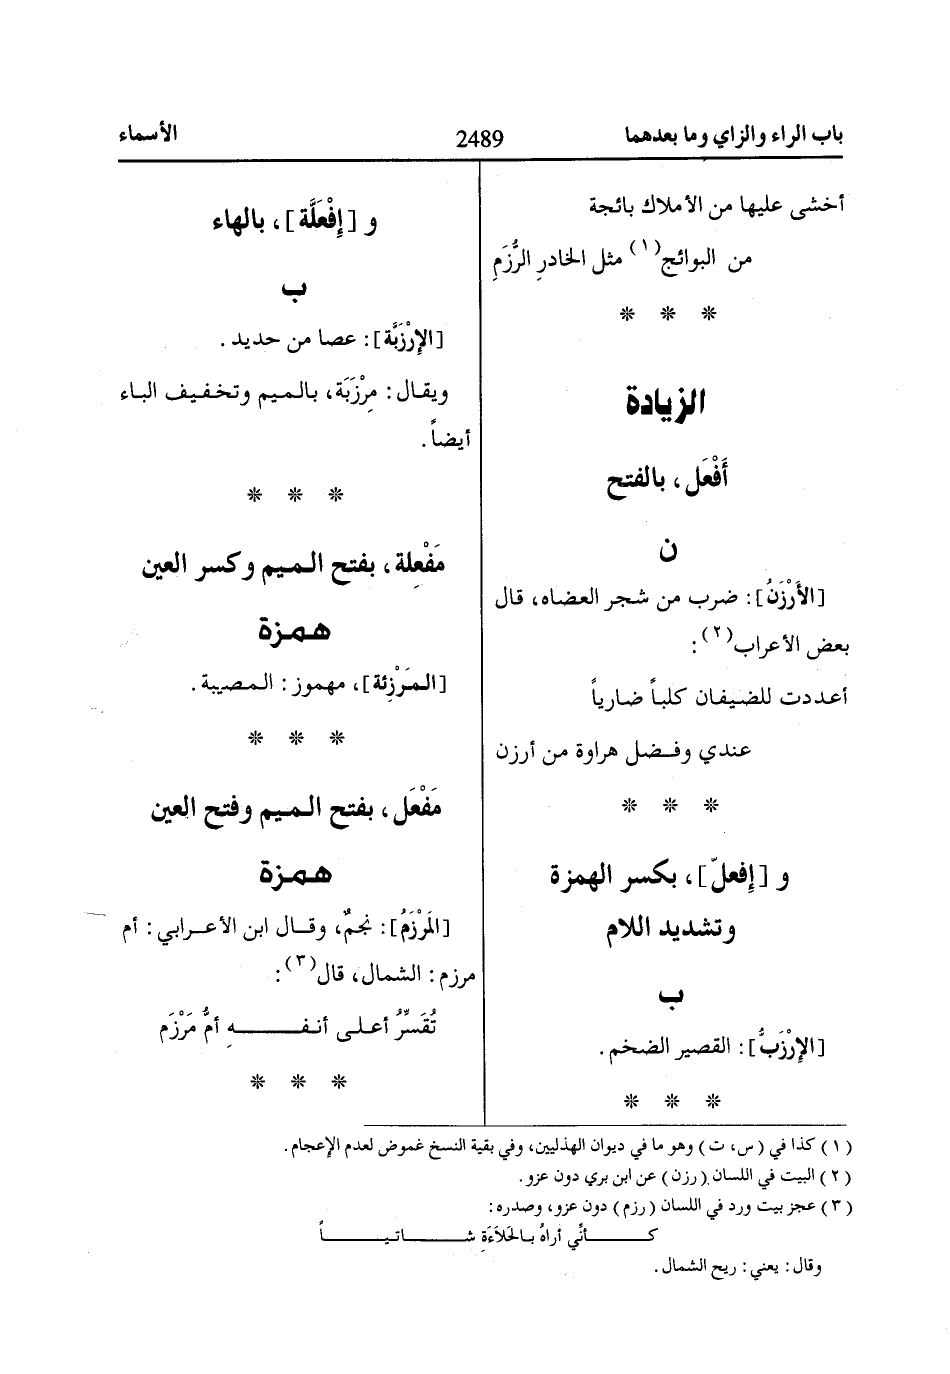 باب الراء والزاي وما بعدهما 2489 الأسماء
أخشى عليها من الأملاك بائجة
من البوائج(١) مثل الخادرِ الرُّزَمِ
* * *
الزيادة
أَفْعَل، بالفتح
ن
[الأَرْزَنُ]: ضرب من شجر العضاه، قال
بعض الأعراب(٢):
أعددت للضيفان كلباً ضارياً
عندي وفضل هراوة من أرزن
* * *
و [إِفعلّ]، بكسر الهمزة
وتشديد اللام
ب
[الإِرْزَبُّ]: القصير الضخم.
* * *
و [إِفْعَلَّة]، بالهاء
ب
[الإِرْزَبَّة]: عصا من حديد.
ويقال: مِرْزَبَة، بالميم وتخفيف الباء
أيضاً.
* * *
مَفْعِلة، بفتح الميم وكسر العين
همزة
[المَرْزِئة]، مهموز: المصيبة.
* * *
مَفْعَل، بفتح الميم وفتح العين
همزة
[المَرْزَمُ]: نجمٌ، وقال ابن الأعرابي: أم
مرزم: الشمال، قال(٣):
تُقَسِّرُ أعلى أنفهِ أمُّ مَرْزَمِ
* * *
(١) كذا في (س، ت) وهو ما في ديوان الهذليين، وفي بقية النسخ غموض لعدم الإعجام.
(٢) البيت في اللسان (رزن) عن ابن بري دون عزو.
(٣) عجز بيت ورد في اللسان (رزم) دون عزو، وصدره:
كأنِّي أراهُ بالحَلاَءَةِ شاتياً
وقال: يعني: ريح الشمال.